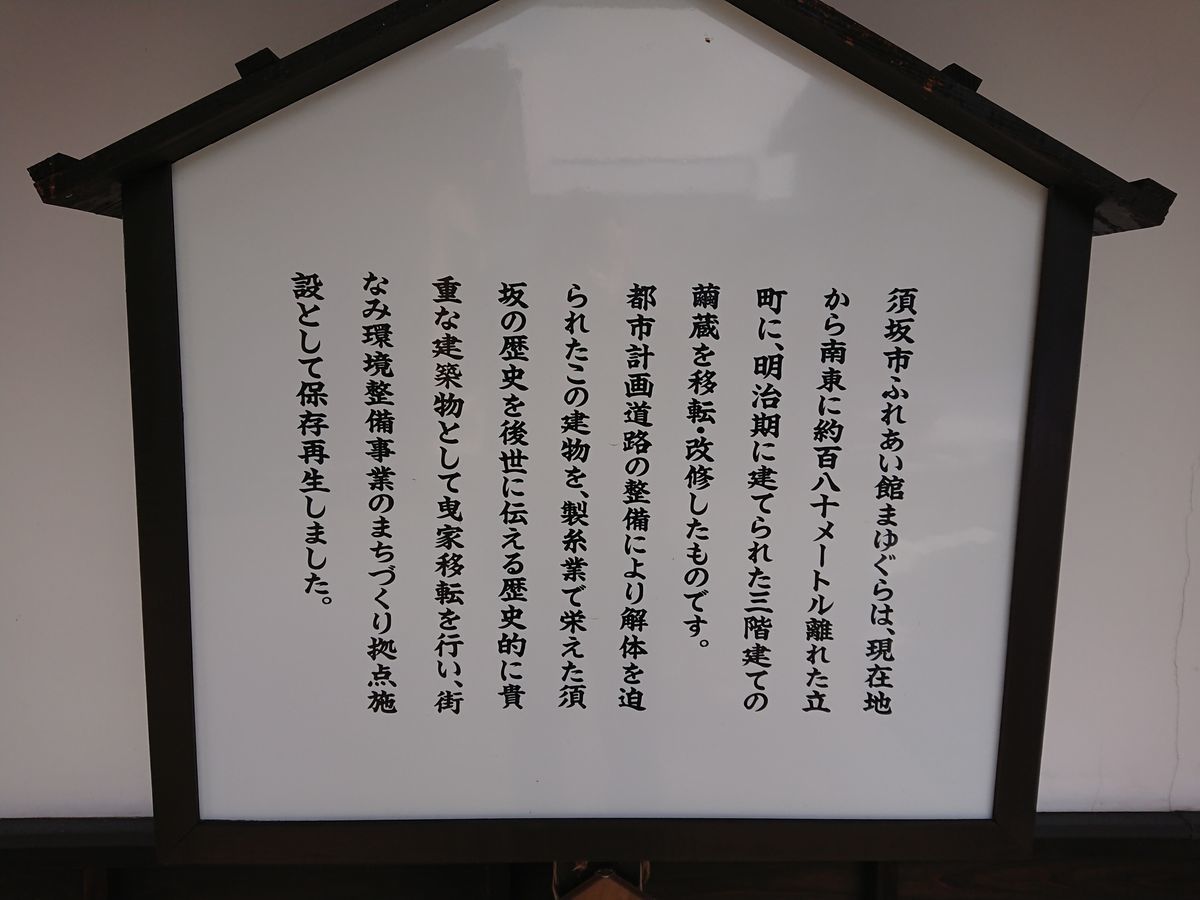 須坂市ふれあい館まゆぐらは、現在地
から南東に約百八十メートル離れた立
町に、明治期に建てられた三階建ての
繭蔵を移転・改修したものです。
都市計画道路の整備により解体を迫
られたこの建物を、製糸業で栄えた須
坂の歴史を後世に伝える歴史的に貴
重な建築物として曳家移転を行い、街
なみ環境整備事業のまちづくり拠点施
設として保存再生しました。